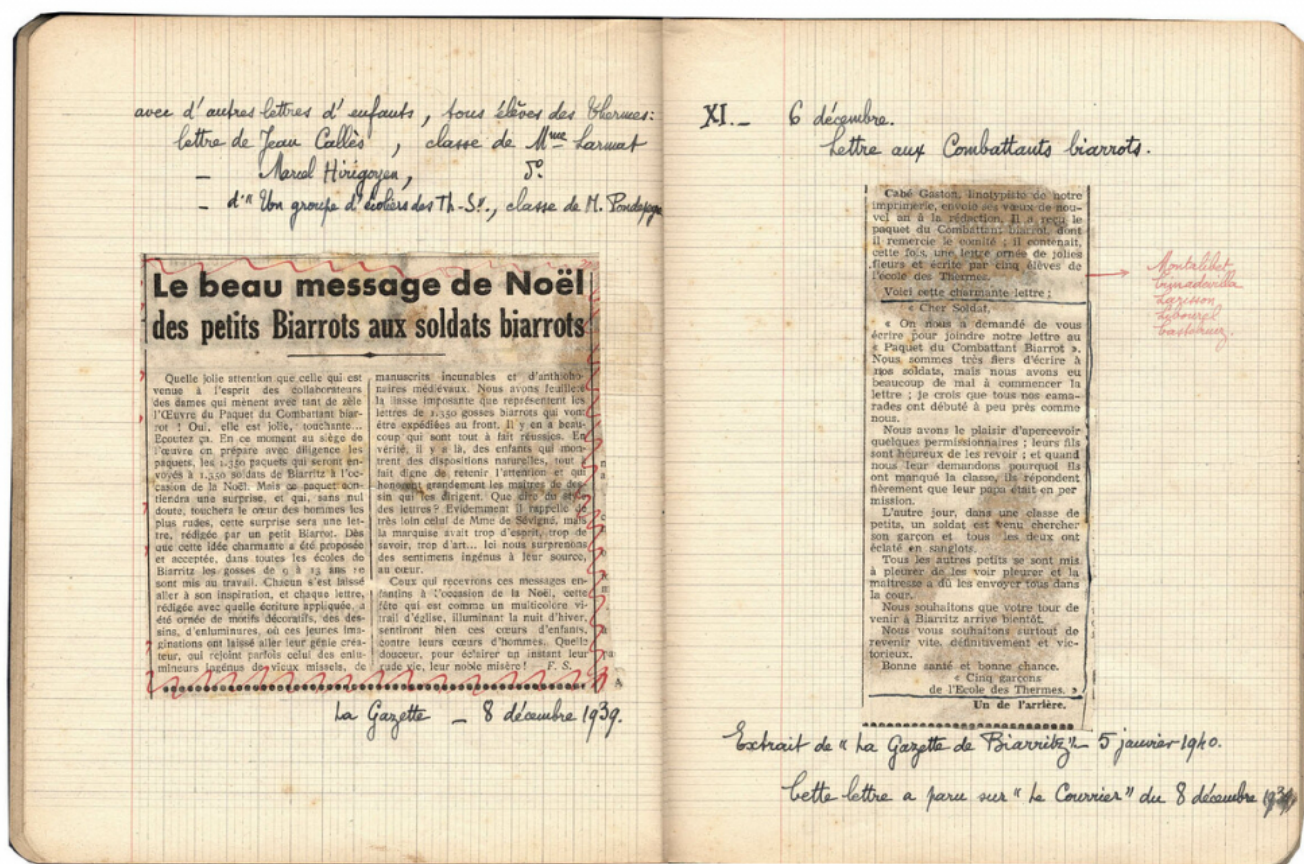 avec d'autres lettres d'enfants, tous élèves des Thermes:
lettre de Jean Callès, classe de Mme Larmat
— Marcel Hirigoyen, do
— d'"Un groupe d'écoliers des Th-S", classe de M.
Le beau message de Noël
des petits Biarrots aux soldats biarrots
Quelle jolie attention que celle qui est
venue à l'esprit des collaborateurs
des dames qui mènent avec tant de zèle
l'Œuvre du Paquet du Combattant biar-
rot ! Oui, elle est jolie, touchante...
Ecoutez ça. En ce moment au siège de
l'œuvre on prépare avec diligence les
paquets, les 1.350 paquets qui seront en-
voyés à 1.350 soldats de Biarritz à l'oc-
casion de la Noël. Mais ce paquet con-
tiendra une surprise, et qui, sans nul
doute, touchera le cœur des hommes les
plus rudes, cette surprise sera une let-
tre, rédigée par un petit Biarrot. Dès
que cette idée charmante a été proposée
et acceptée, dans toutes les écoles de
Biarritz les gosses de 9 à 13 ans se
sont mis au travail. Chacun s'est laissé
aller à son inspiration, et chaque lettre,
rédigée avec quelle écriture appliquée, a
été ornée de motifs décoratifs, des des-
sins, d'enluminures, où ces jeunes ima-
ginations ont laissé aller leur génie créa-
teur, qui rejoint parfois celui des enlu-
mineurs ingénus de vieux missels, de
manuscrits incunables et d'anthipho-
naires médiévaux. Nous avons feuilleté
la liasse imposante que représentent les
lettres de 1.350 gosses biarrots qui vont
être expédiées au front. Il y en a beau-
coup qui sont tout à fait réussies. En
vérité, il y a là, des enfants qui mon-
trent des dispositions naturelles, tout à
fait digne de retenir l'attention et qui
honorent grandement les maîtres de des-
sin qui les dirigent. Que dire du style
des lettres ? Evidemment il rappelle de
très loin celui de Mme de Sévigné, mais
la marquise avait trop d'esprit, trop de
savoir, trop d'art... Ici nous surprenons
des sentimens ingénus à leur source,
au cœur.
Ceux qui recevrons ces messages en-
fantins à l'occasion de la Noël, cette
fête qui est comme un multicolore vi-
trail d'église, illuminant la nuit d'hiver,
sentiront bien ces cœurs d'enfants,
contre leurs cœurs d'hommes. Quelle
douceur, pour éclairer un instant leur
rude vie, leur noble misère ! F. S.
La Gazette — 8 décembre 1939.
XI. — 6 décembre.
Lettre aux Combattants biarrots.
Cabé Gaston, linotypiste de notre
imprimerie, envoie ses vœux de nou-
vel an à la rédaction. Il a reçu le
paquet du Combattant biarrot, dont
il remercie le comité ; il contenait,
cette fois, une lettre ornée de jolies
fleurs et écrite par cinq élèves de
l'école des Thermes.
Voici cette charmante lettre :
« Cher Soldat,
« On nous a demandé de vous
écrire pour joindre notre lettre au
« Paquet du Combattant Biarrot ».
Nous sommes très fiers d'écrire à
nos soldats, mais nous avons eu
beaucoup de mal à commencer la
lettre ; je crois que tous nos cama-
rades ont débuté à peu près comme
nous.
Nous avons le plaisir d'apercevoir
quelques permissionnaires ; leurs fils
sont heureux de les revoir ; et quand
nous leur demandons pourquoi ils
ont manqué la classe, ils répondent
fièrement que leur papa était en per
mission.
L'autre jour, dans une classe de
petits, un soldat est venu chercher
son garçon et tous les deux ont
éclaté en sanglots.
Tous les autres petits se sont mis
à pleurer de les voir pleurer et la
maîtresse a dû les envoyer tous dans
la cour.
Nous souhaitons que votre tour de
venir à Biarritz arrive bientôt.
Nous vous souhaitons surtout de
revenir vite, définitivement et vic-
torieux.
Bonne santé et bonne chance.
« Cinq garçons
de l'Ecole des Thermes. »
Un de l'arrière.
Montalibet
Larisson
Libourel
Extrait de "La Gazette de Biarritz" — 5 janvier 1940.
Cette lettre a paru sur "Le Courrier" du 8 décembre 1939